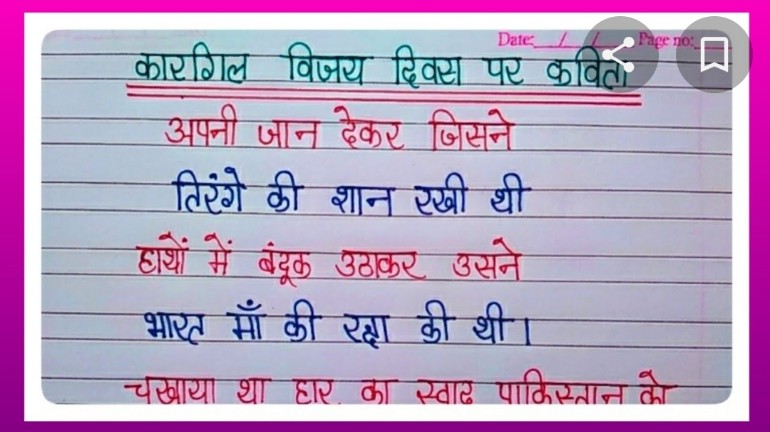 Date: __/__/__ Page no:
कारगिल विजय दिवस पर कविता
अपनी जान देकर जिसने
तिरंगे की शान रखी थी
हाथों में बंदूक उठाकर उसने
भारत माँ की रक्षा की थी।
चखाया था हार का स्वाद पाकिस्तान को